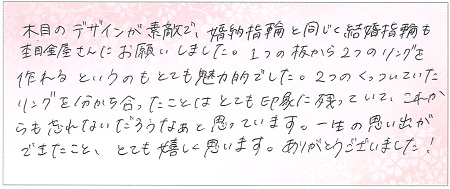 木目のデザインが素敵で、婚約指輪と同じく結婚指輪も
杢目金屋さんにお願いしました。1つの板から2つのリングを
作れるというのもとても魅力的でした。2つのくっついていた
リングを分から合ったことはとても印象に残っていて、これか
らも忘れないだろうなぁと思っています。一生の思い出が
できたこと、とても嬉しく思います。ありがとうございました!